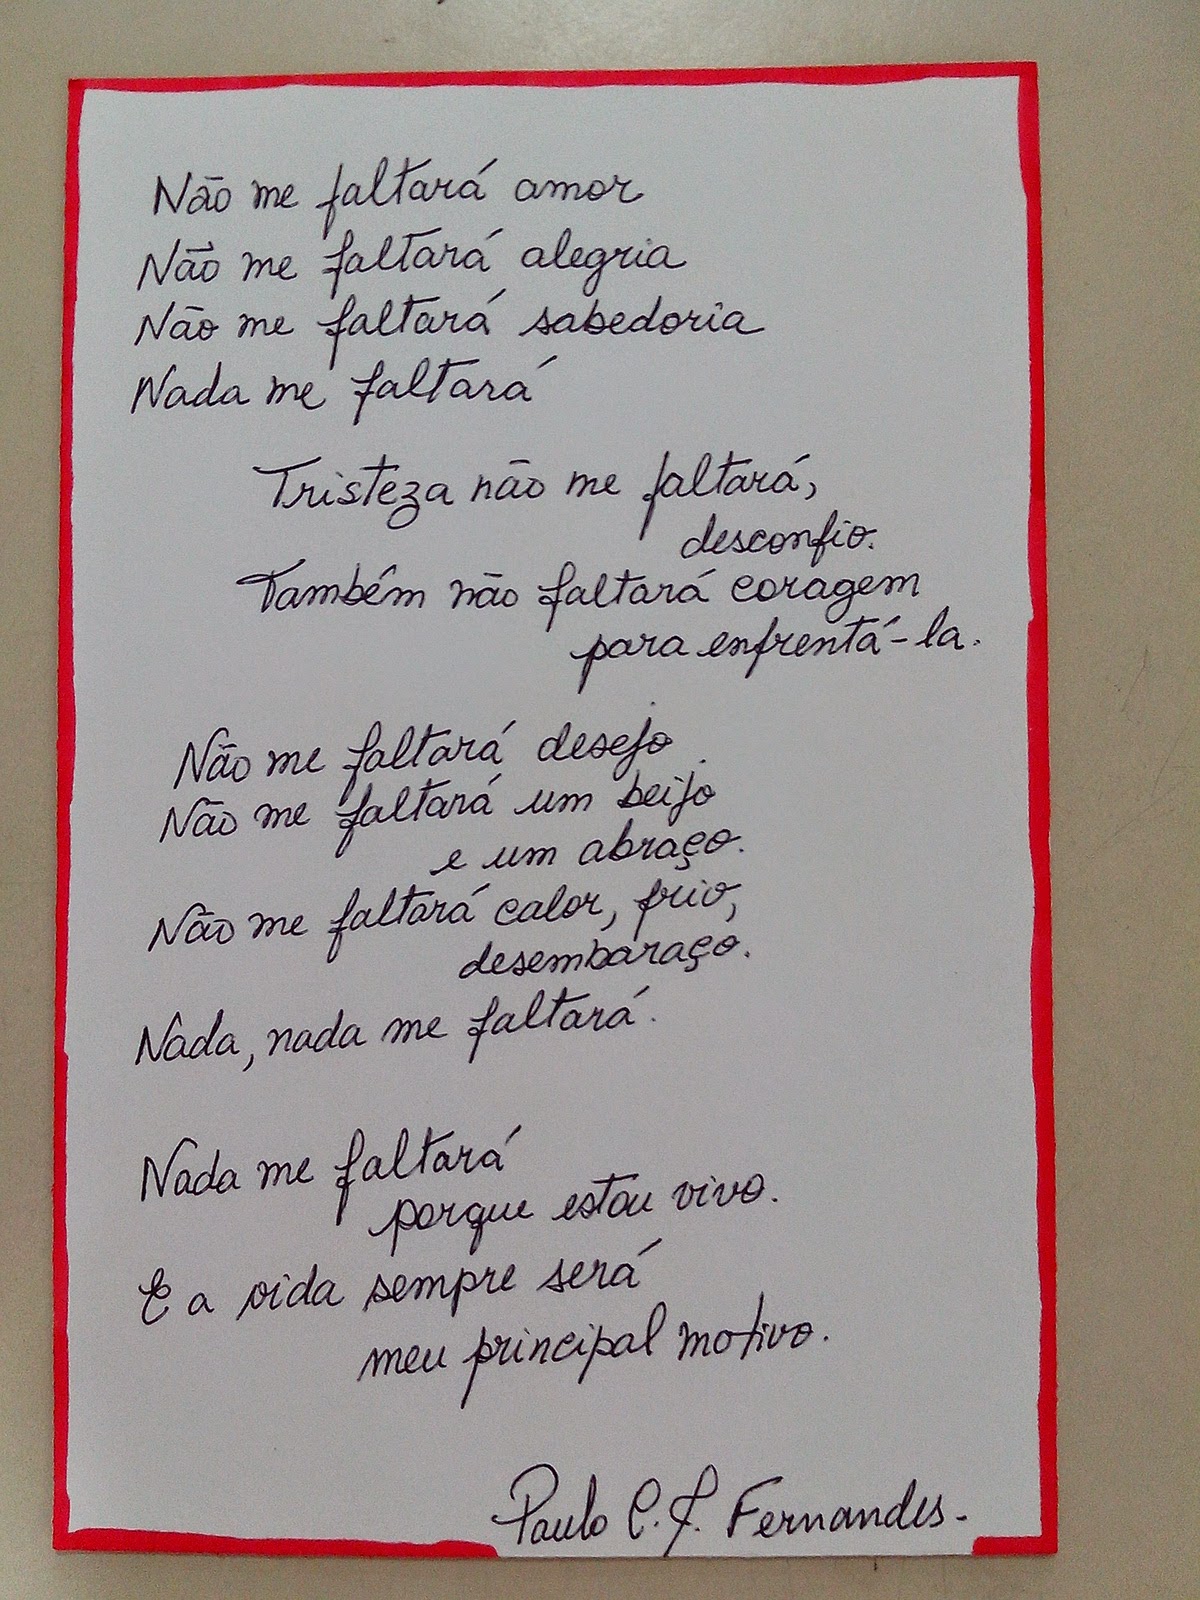 Não me faltará amor
Não me faltará alegria
Não me faltará sabedoria
Nada me faltará
Tristeza não me faltará,
desconfio.
Também não faltará coragem
para enfrentá-la.
Não me faltará desejo
Não me faltará um beijo
e um abraço.
Não me faltará calor, frio,
desembaraço.
Nada, nada me faltará.
Nada me faltará
porque estou vivo.
E a vida sempre será
meu principal motivo.
Paulo C. F. Fernandes.